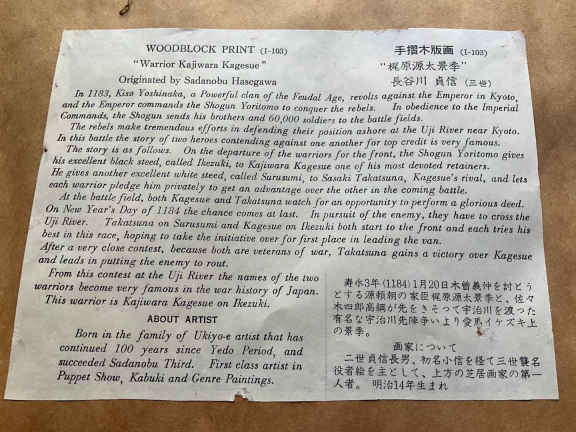 WOODBLOCK PRINT (I-103)
"Warrior Kajiwara Kagesue"
Originated by Sadanobu Hasegawa
手摺木版画 (I-103)
"梶原源太景季"
長谷川 貞信 (三世)
In 1183, Kiso Yoshinaka, a Powerful clan of the Feudal Age, revolts against the Emperor in Kyoto,
and the Emperor commands the Shogun Yoritomo to conquer the rebels. In obedience to the Imperial
Commands, the Shogun sends his brothers and 60,000 soldiers to the battle fields.
The rebels make tremendous efforts in defending their position ashore at the Uji River near Kyoto.
In this battle the story of two heroes contending against one another for top credit is very famous.
The story is as follows. On the departure of the warriors for the front, the Shogun Yoritomo gives
his excellent black steed, called Ikezuki, to Kajiwara Kagesue one of his most devoted retainers.
He gives another excellent white steed, called Surusumi, to Sasaki Takatsuna, Kagesue's rival, and lets
each warrior pledge him privately to get an advantage over the other in the coming battle.
At the battle field, both Kagesue and Takatsuna watch for an opportunity to perform a glorious deed.
On New Year's Day of 1184 the chance comes at last. In pursuit of the enemy, they have to cross the
Uji River. Takatsuna on Surusumi and Kagesue on Ikezuki both start to the front and each tries his
best in this race, hoping to take the initiative over for first place in leading the van.
After a very close contest, because both are veterans of war, Takatsuna gains a victory over Kagesue
and leads in putting the enemy to rout.
From this contest at the Uji River the names of the two
warriors become very famous in the war history of Japan.
This warrior is Kajiwara Kagesue on Ikezuki.
ABOUT ARTIST
Born in the family of Ukiyo-e artist that has
continued 100 years since Yedo Period, and
succeeded Sadanobu Third. First class artist in
Puppet Show, Kabuki and Genre Paintings.
寿永3年(1184)1月20日木曽義仲を討とう
とする源頼朝の家臣梶原源太景季と、佐々
木四郎高綱が先をきそって宇治川を渡った
有名な宇治川先陣争いより愛馬イケズキ上
の景季。
画家について
二世貞信長男、初名小信を経て三世襲名
役者絵を主として、上方の芝居画家の第一
人者。 明治14年生まれ